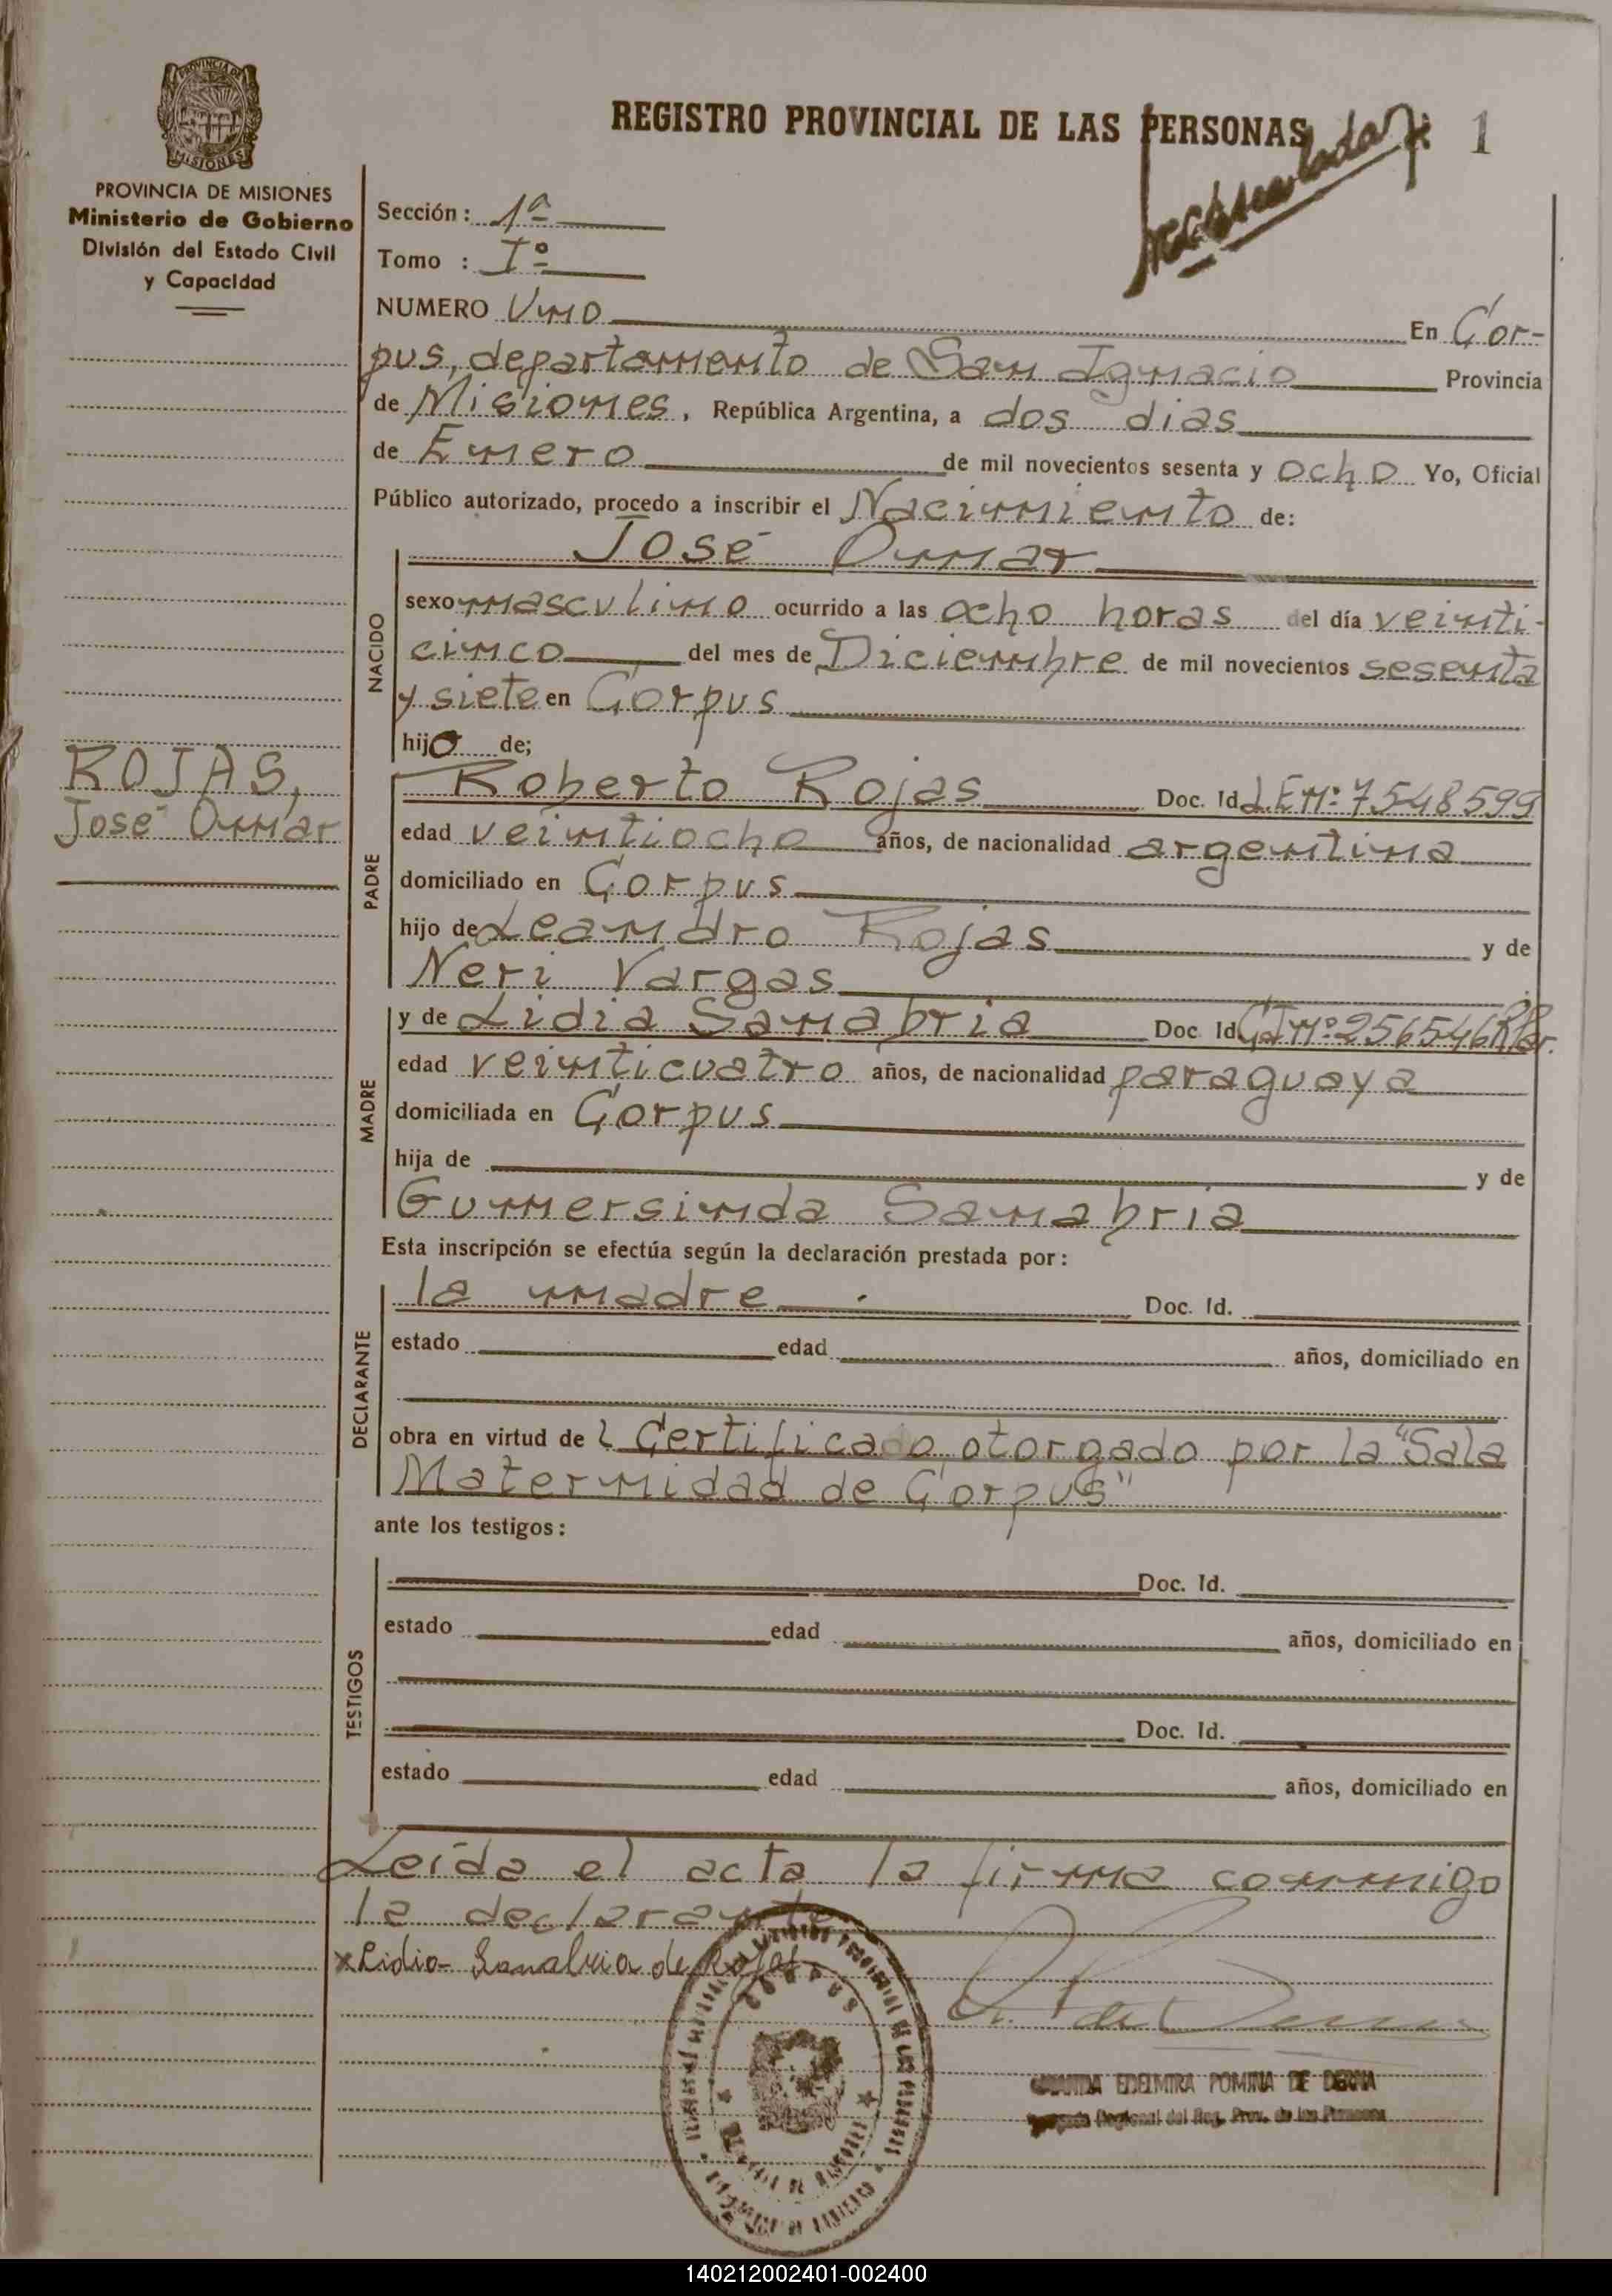 PROVINCIA DE
MISIONES
PROVINCIA DE MISIONES
Ministerio de Gobierno
División del Estado Civil
y Capacidad
REGISTRO PROVINCIAL DE LAS PERSONAS
1
Sección: 1ª
Tomo : Iº
NUMERO Uno En Cor-
pus, departamento de San Ignacio Provincia
de Misiones, República Argentina, a dos dias
de Enero de mil novecientos sesenta y ocho Yo, Oficial
Público autorizado, procedo a inscribir el Nacimiento de:
José Omar
NACIDO
sexo masculino ocurrido a las ocho horas del día veinti-
cinco del mes de Diciembre de mil novecientos sesenta
y siete en Corpus
hijo de;
ROJAS,
José Omar
PADRE
Roberto Rojas Doc. Id L.E nº 7548599
edad veintiocho años, de nacionalidad argentina
domiciliado en Corpus
hijo de Leandro Rojas y de
Neri Vargas
MADRE
y de Lidia Sanabria Doc. Id C.I nº 256546
edad veinticuatro años, de nacionalidad paraguaya
domiciliada en Corpus
hija de y de
Gumersinda Sanabria
Esta inscripción se efectúa según la declaración prestada por:
DECLARANTE
la madre Doc. Id.
estado edad años, domiciliado en
obra en virtud de l Certificado otorgado por la "Sala
Maternidad de Corpus"
ante los testigos:
TESTIGOS
Doc. Id.
estado edad años, domiciliado en
Doc. Id.
estado edad años, domiciliado en
Leída el acta la firma conmigo
la declarante
x Lidia Sanabria de Rojas
CORPUS
EDELMIRA POMINA DE
Regional del Reg. Prov. de las Personas
140212002401-002400